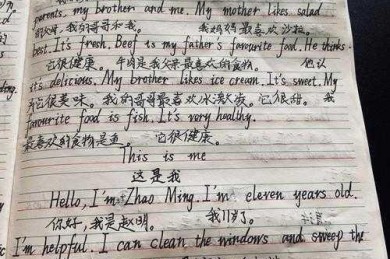 parents, my brother and me. My mother likes salad
我的哥哥和我。 我妈妈最喜欢沙拉。
best. It's fresh. Beef is my father's favourite food. He thinks
它很健康。 牛肉是我父亲最喜欢的食物。 他认
it's delicious. My brother likes ice cream. It's sweet. My
它很美味。 我的哥哥最喜欢冰激凌。 它很甜。 我
favourite food is fish. It's very healthy.
最喜欢的食物是鱼。 它很健康。
This is me
这是我
Hello, I'm Zhao Ming. I'm eleven years old.
你好,我是赵明。 我11岁了。
I'm helpful. I can clean the windows and sweep the